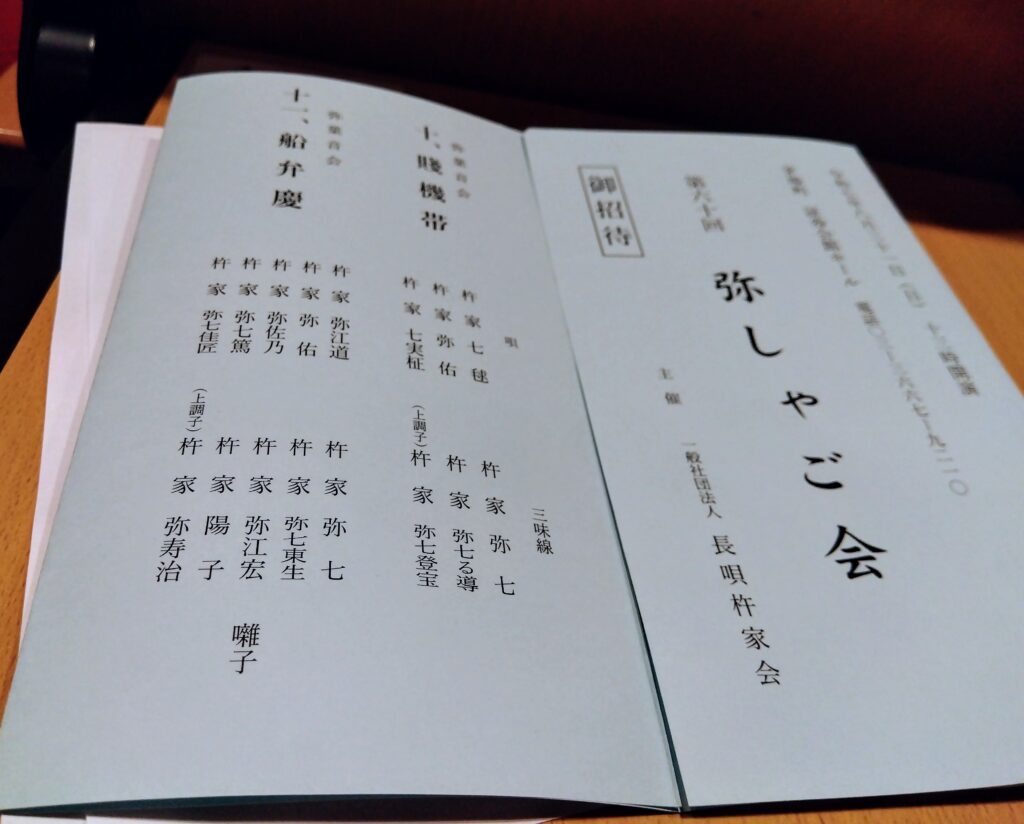 開演
ホール 電話〇三ー三六六七ー九二一〇
弥しゃご会
第六十回
主催 一般社団法人 長唄杵家会
御招待
唄 三味線
弥葉音会
十、賤機帯
杵家七毬 杵家弥七
杵家弥佑 杵家弥七る導
杵家七実柾 （上調子）杵家弥七登宝
弥葉音会
十一、船弁慶
杵家弥江道 杵家弥七
杵家弥佑 杵家弥七東生
杵家弥佐乃 杵家弥江宏
杵家弥七篤 杵家陽子
杵家弥七佳匠 （上調子）杵家弥寿治
囃子